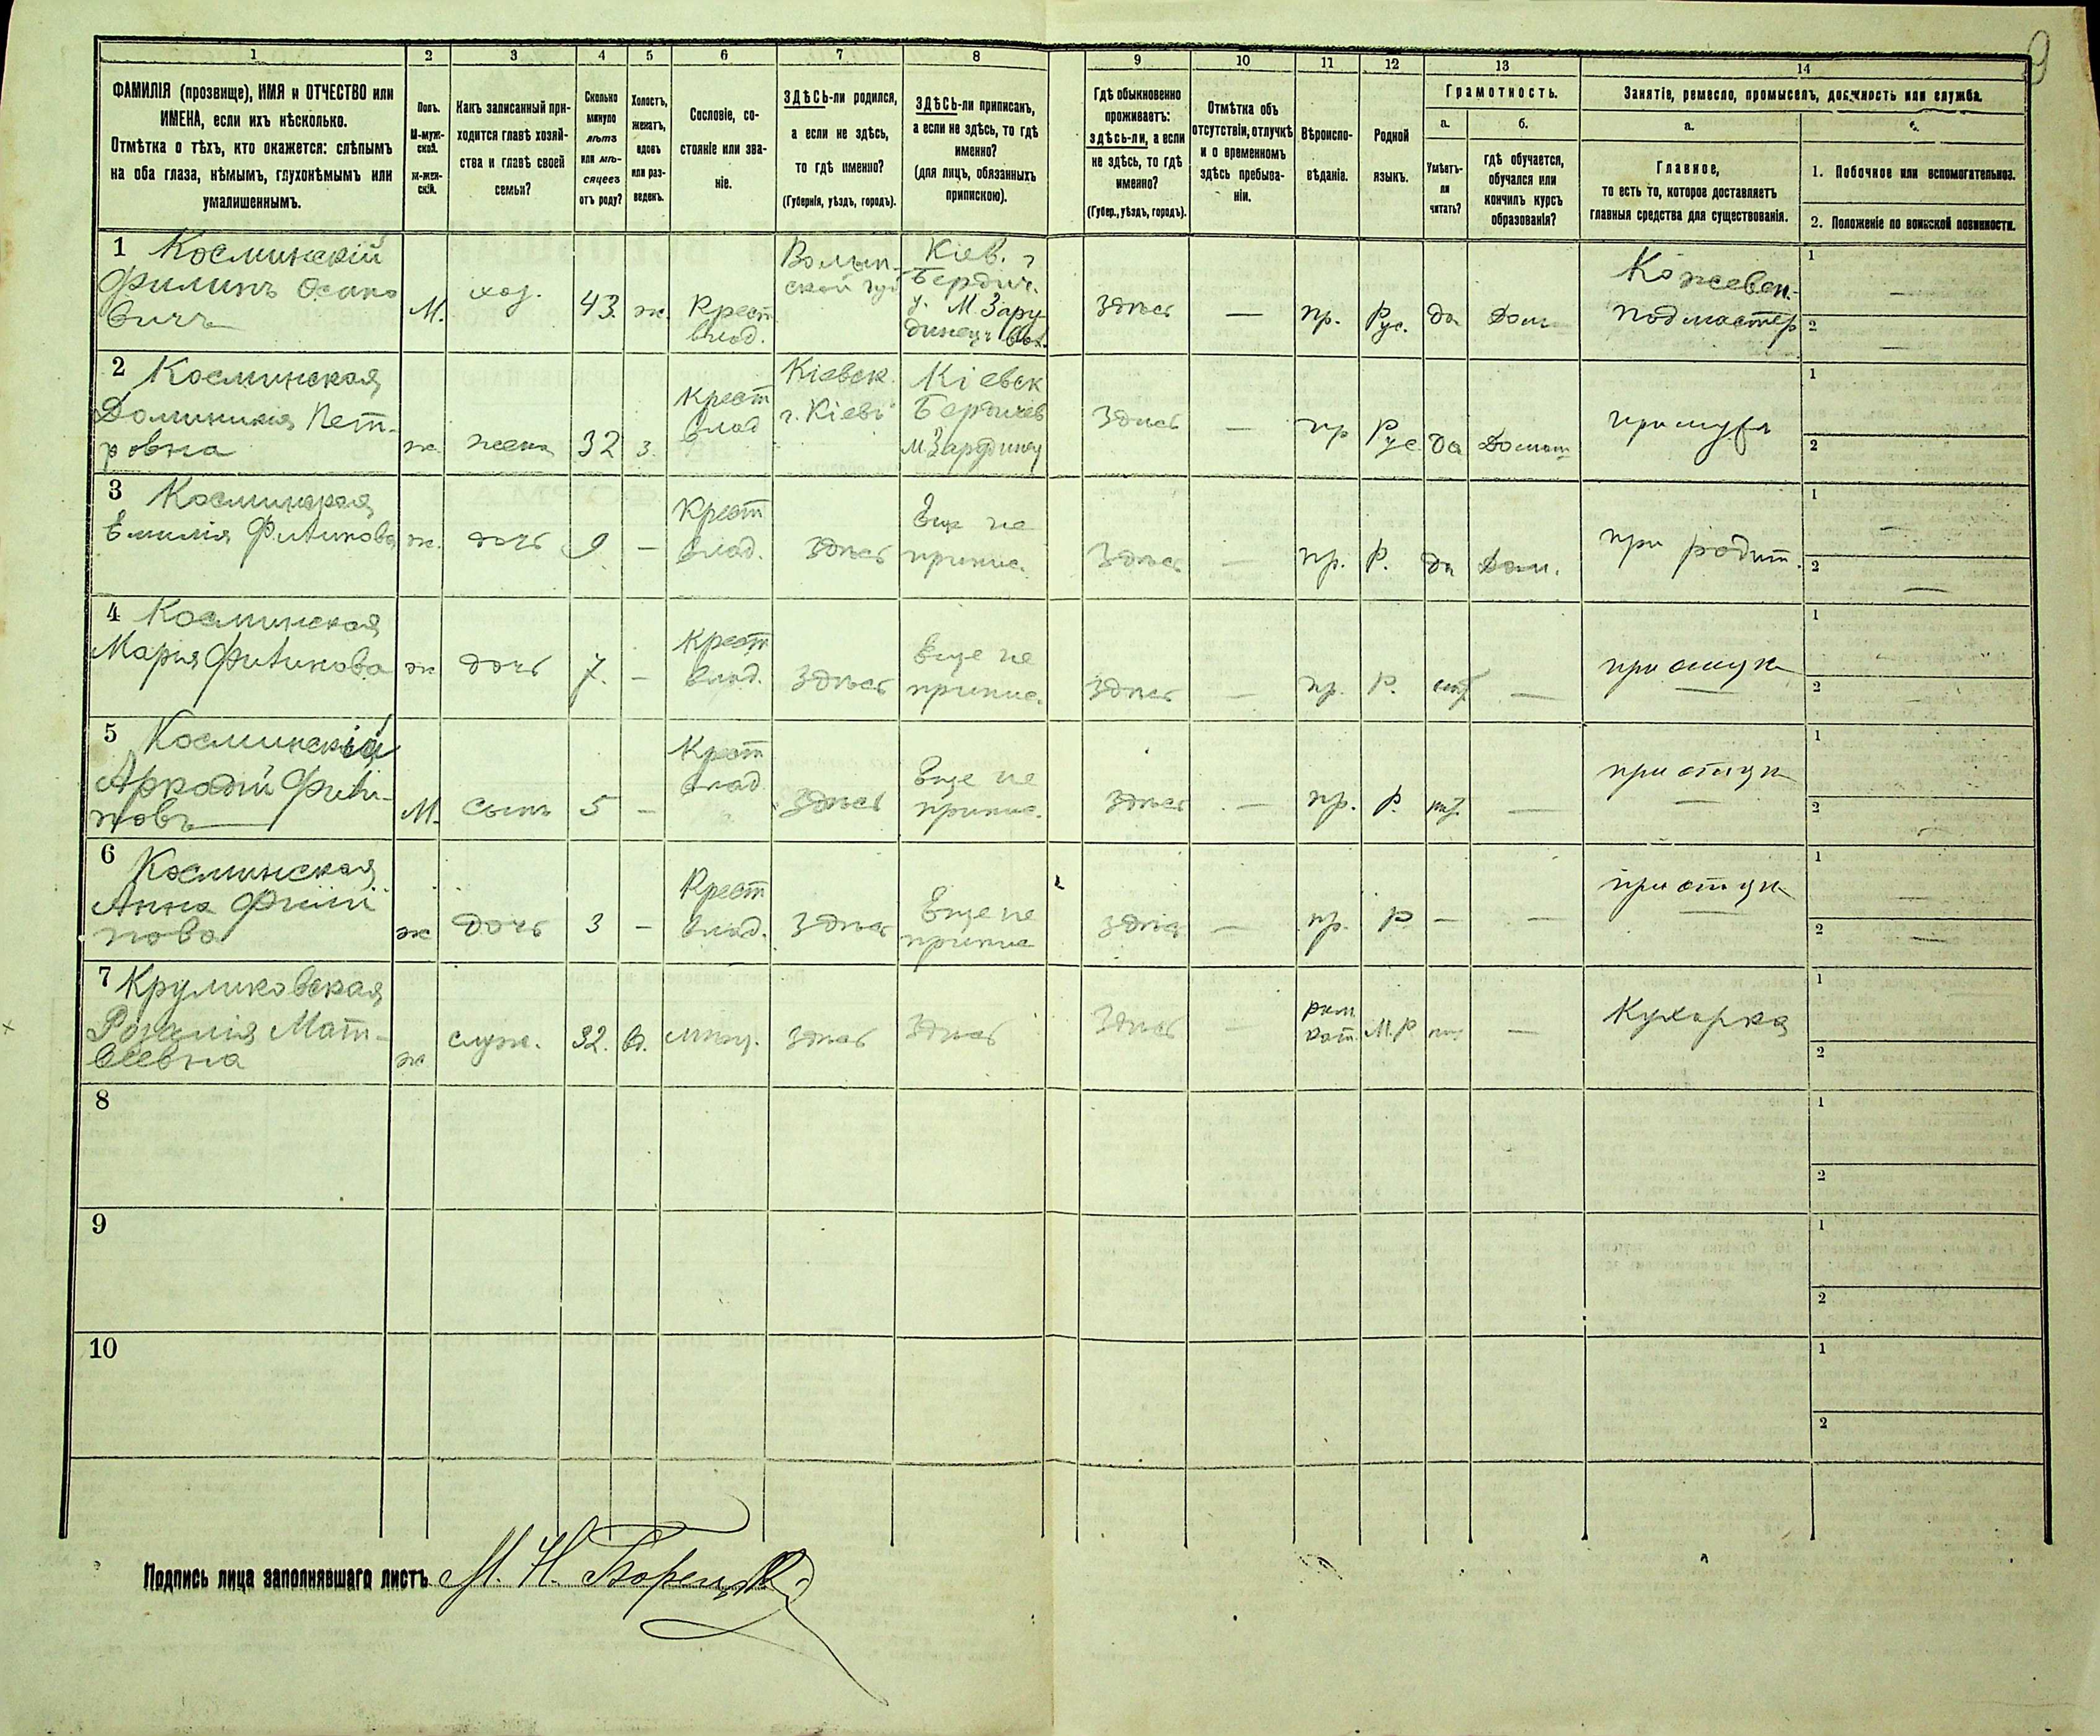 1 2 3 4 5 6 7 8 9 10 11 12 13 14
ФАМИЛІЯ (прозвище), ИМЯ и ОТЧЕСТВО или
ИМЕНА, если ихъ нѣсколько.
Отмѣтка о тѣхъ, кто окажется: слѣпымъ
на оба глаза, нѣмымъ, глухонѣмымъ или
умалишеннымъ.
Полъ.
М-муж-
ской.
ж-жен-
скій.
Какъ записанный при-
ходится главѣ хозяй-
ства и главѣ своей
семьи?
Сколько
минуло
лѣтъ
или мѣ-
сяцевъ
отъ роду?
Холостъ,
женатъ,
вдовъ
или раз-
веденъ.
Сословіе, со-
стояніе или зва-
ніе.
ЗДѢСЬ-ли родился,
а если не здѣсь,
то гдѣ именно?
(Губернія, уѣздъ, городъ).
ЗДѢСЬ-ли приписанъ,
а если не здѣсь, то гдѣ
именно?
(для лицъ, обязанныхъ
припискою).
Гдѣ обыкновенно
проживаетъ:
здѣсь-ли, а если
не здѣсь, то гдѣ
именно?
(Губер., уѣздъ, городъ).
Отмѣтка объ
отсутствіи, отлучкѣ
и о временномъ
здѣсь пребыва-
ніи.
Вѣроиспо-
вѣданіе.
Родной
языкъ.
Грамотность.
а.
Умѣетъ-
ли
читать?
б.
гдѣ обучается,
обучался или
кончилъ курсъ
образованія?
Занятіе, ремесло, промыселъ, должность или служба.
а.
Главное,
то есть то, которое доставляетъ
главныя средства для существованія.
1. Побочное или вспомогательное.
2. Положеніе по воинской повинности.
1 Косминскій
Филипъ Осипо
вичъ
М.
хоз.
43
ж.
Крест
влад.
Волын-
ской губ
Кіев. г
Бердич.
у. М. Зару
динец
здѣсь
—
пр.
Рус.
да
Дом
Кожевен.
подмастер
1 —
2 —
2 Косминская
Доминикия Пет-
ровна
ж.
жена
32
з.
Крест
влад
Кіевск
г. Кіевъ
Кіевск
Бердичев
здѣсь
—
пр
Рус
да
Домаш
при муж
1
2
3 Косминская
Емилія Филипова
ж.
дочь
9
—
Крест
влад.
здѣсь
Еще не
припис.
здѣсь
—
пр.
Р.
да
Дом.
при родит.
1 —
2 —
4 Косминская
Марія Филипова
ж
дочь
7.
—
Крест
влад.
здѣсь
Еще не
припис.
здѣсь
—
пр.
Р.
—
1
2
5 Косминскій
Аркадій Фили-
повъ
М.
сынъ
5
—
Крест
влад
здѣсь
Еще не
припис.
здѣсь
—
пр.
Р.
—
1
2
6 Косминская
Анна Филип
пова
ж
дочь
3
—
Крест
влад.
здѣсь
Еще не
припис
здѣсь
—
пр.
Р
—
—
1 —
2 —
7 Круликовская
Розалія Мат-
веевна
ж
служ.
32.
в.
здѣсь
здѣсь
здѣсь
—
рим
кат.
М.Р
—
Кухарка
1
2
8
1
2
9
1
2
10
1
2
Подпись лица заполнявшаго листъ М. Н.